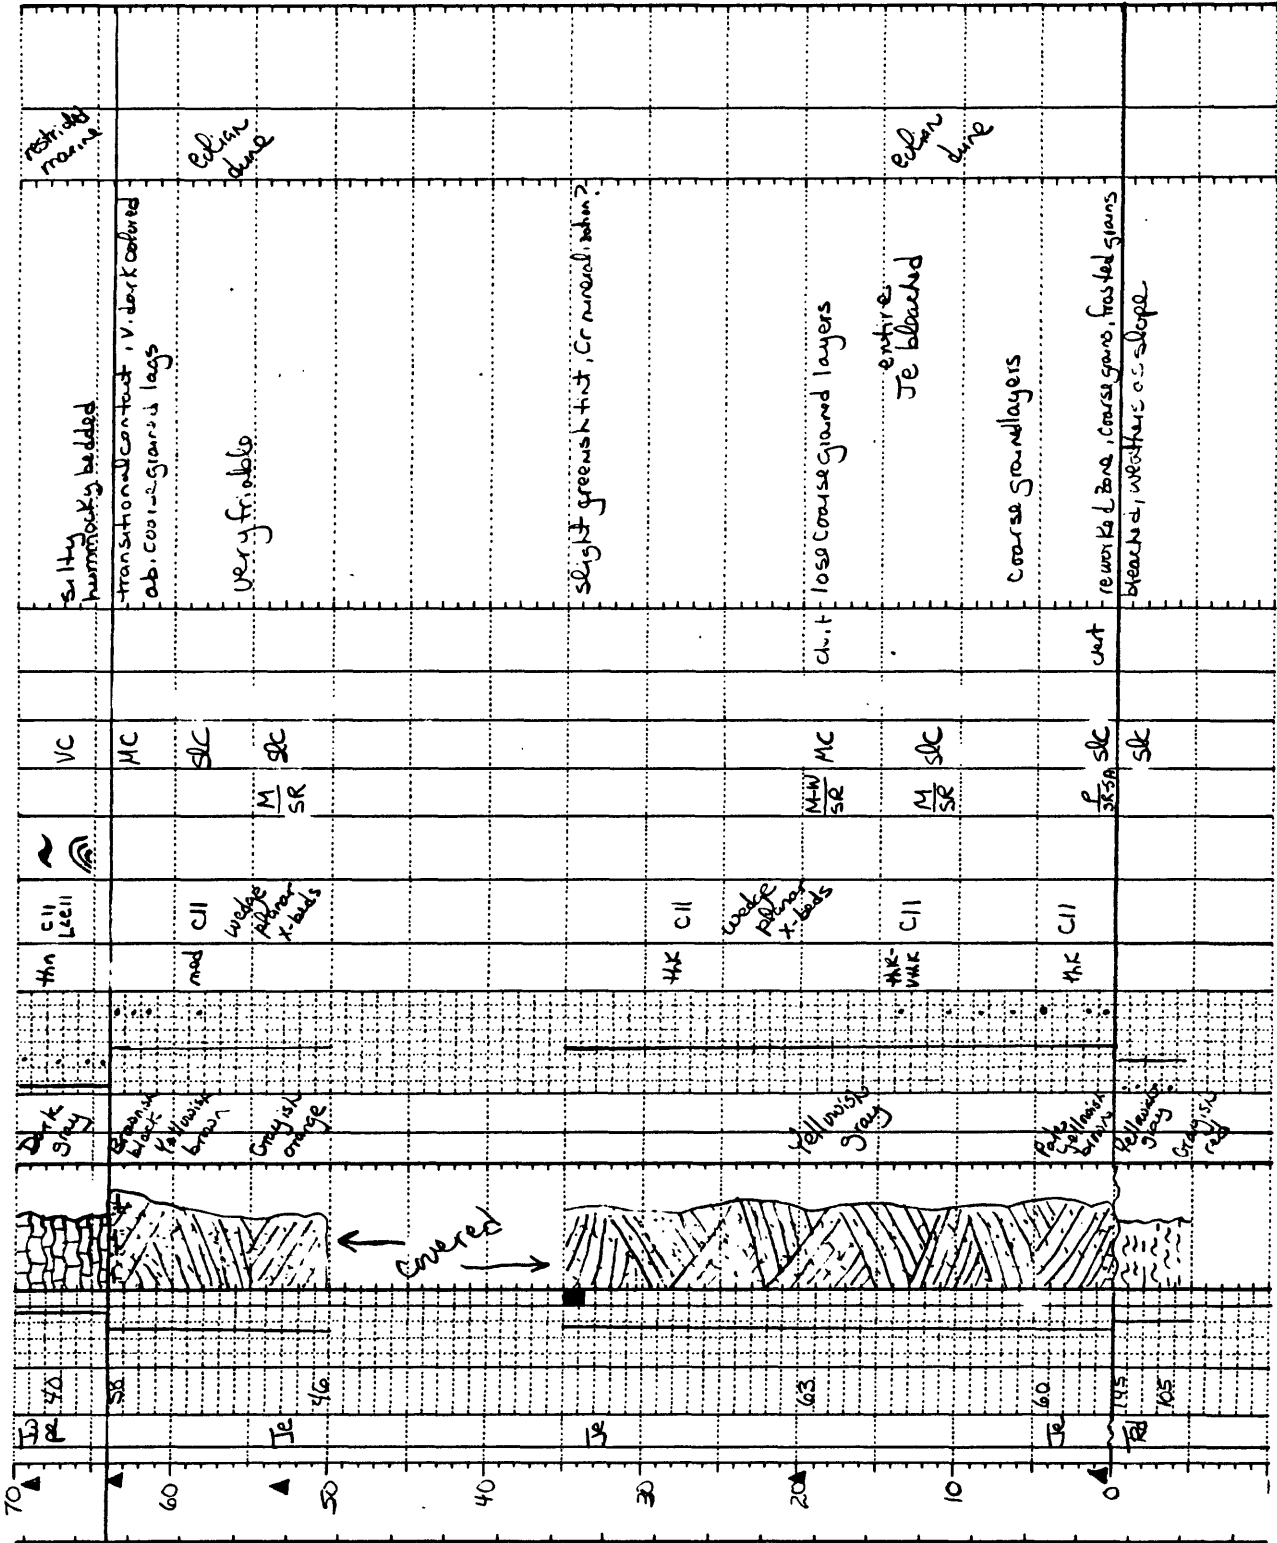 restricted
marine
eolian
dune
eolian
dune
silty
hummocky bedded
transitional contact, v. dark colored
ab. coarse grained lags
very friable
slight greenish tint, Cr mineralization?
lose coarse grained layers
entire
Je bleached
coarse grained layers
reworked zone, coarse grains, frosted grains
bleached, weathers as slope
chert
VC
MC
slC
slC
MC
slC
slC
slC
M
SR
M-W
SR
M
SR
P
SR-SA
cll
cll
wedge
planar
x-beds
cll
wedge
planar
x-beds
cll
cll
thn
med
thk
thk-
vthk
thk
Dark
gray
Brownish
black
Yellowish
brown
Grayish
orange
Yellowish
gray
Pale
yellowish
brown
Yellowish
gray
Grayish
red
Covered
40
58
46
63
60
145
105
Je
Je
Je
70
60
50
40
30
20
10
0